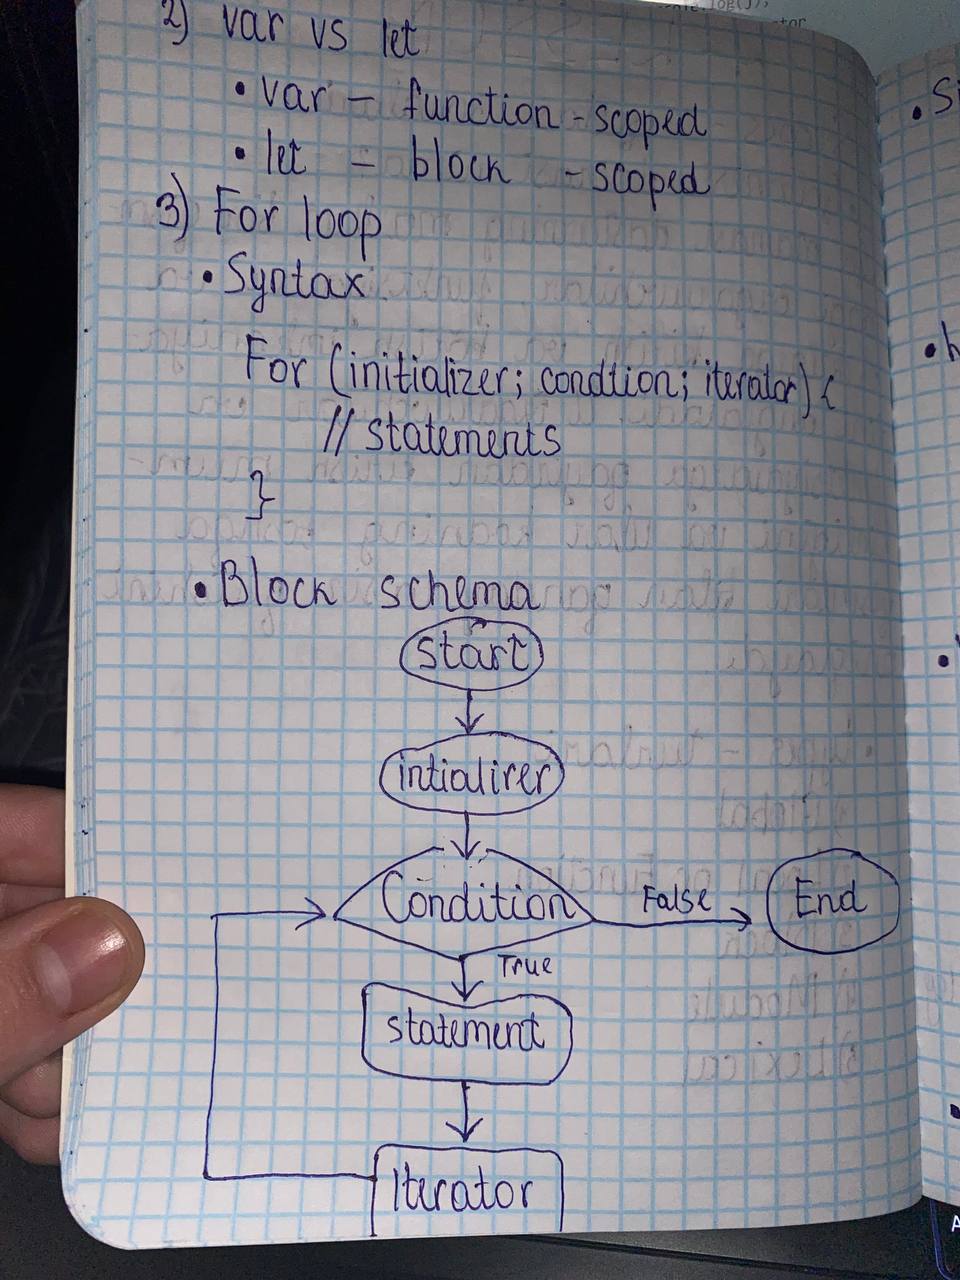 2) var vs let
• var – function-scoped
• let – block -scoped
3) For loop
• Syntax
For (initializer; condtion; iterator) {
// statements
}
• Block schema
start
intialirer
Condition
False
End
True
statement
Iterator